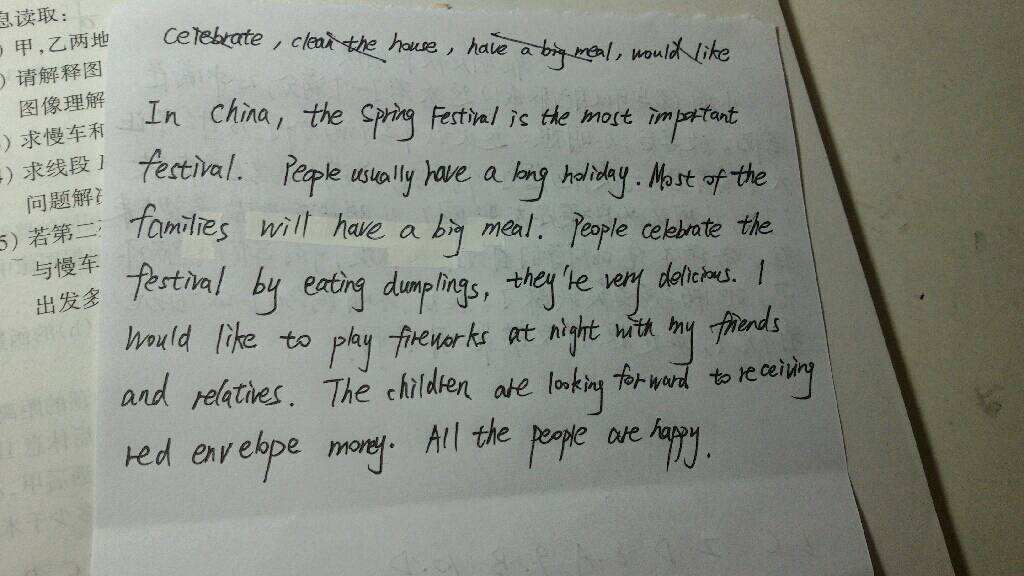 息读取:
)甲,乙两地
)请解释图
图像理解
)求慢车和
)求线段
问题解
5)若第二
与慢车
出发多
celebrate, clean the house, have a big meal, would like
In China, the Spring Festival is the most important
festival. People usually have a long holiday. Most of the
families will have a big meal. People celebrate the
festival by eating dumplings, they're very delicious. I
would like to play fireworks at night with my friends
and relatives. The children are looking forward to receiving
red envelope money. All the people are happy.